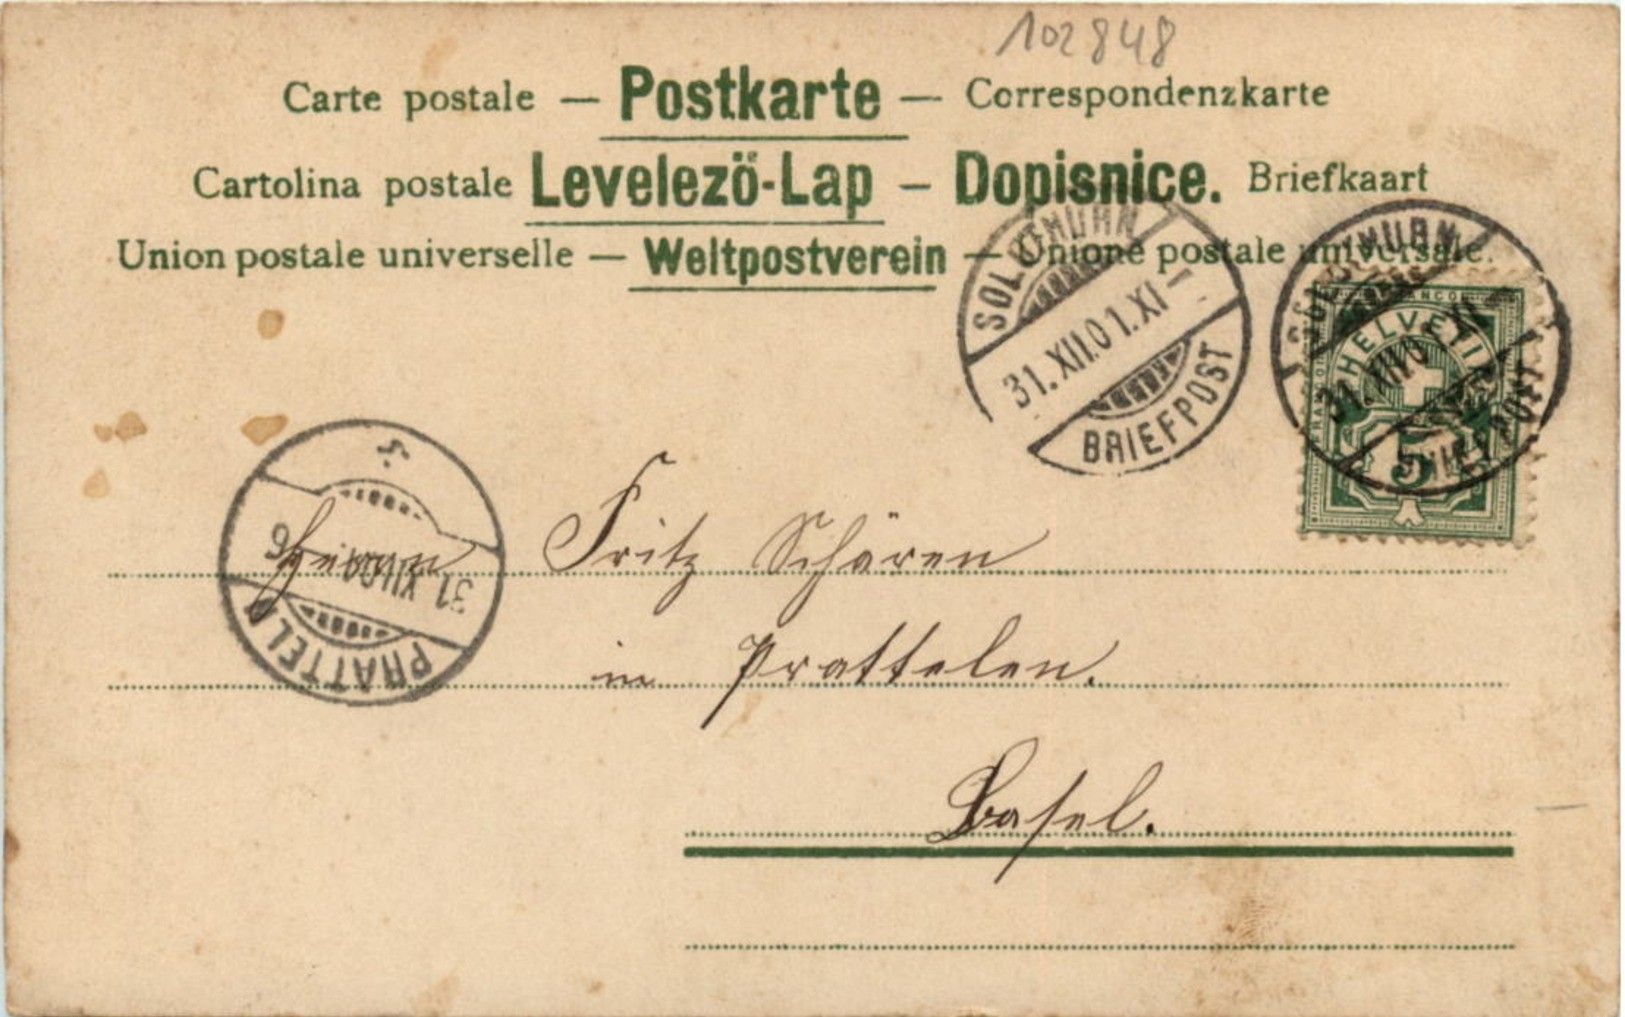 102848
Carte postale — Postkarte — Correspondenzkarte
Cartolina postale Levelezö-Lap — Dopisnice. Briefkaart
Union postale universelle — Weltpostverein — Unione postale universale.
SOLOTHURN
31.XII.01.XI—
BRIEFPOST
SOLOTHURN
31.XII.01.XI—
BRIEFPOST
FRANCO
HELVETIA
5
Herrn Fritz Schären
in Prattelen.
Basel.
PRATTELN
31.XII.01. 6